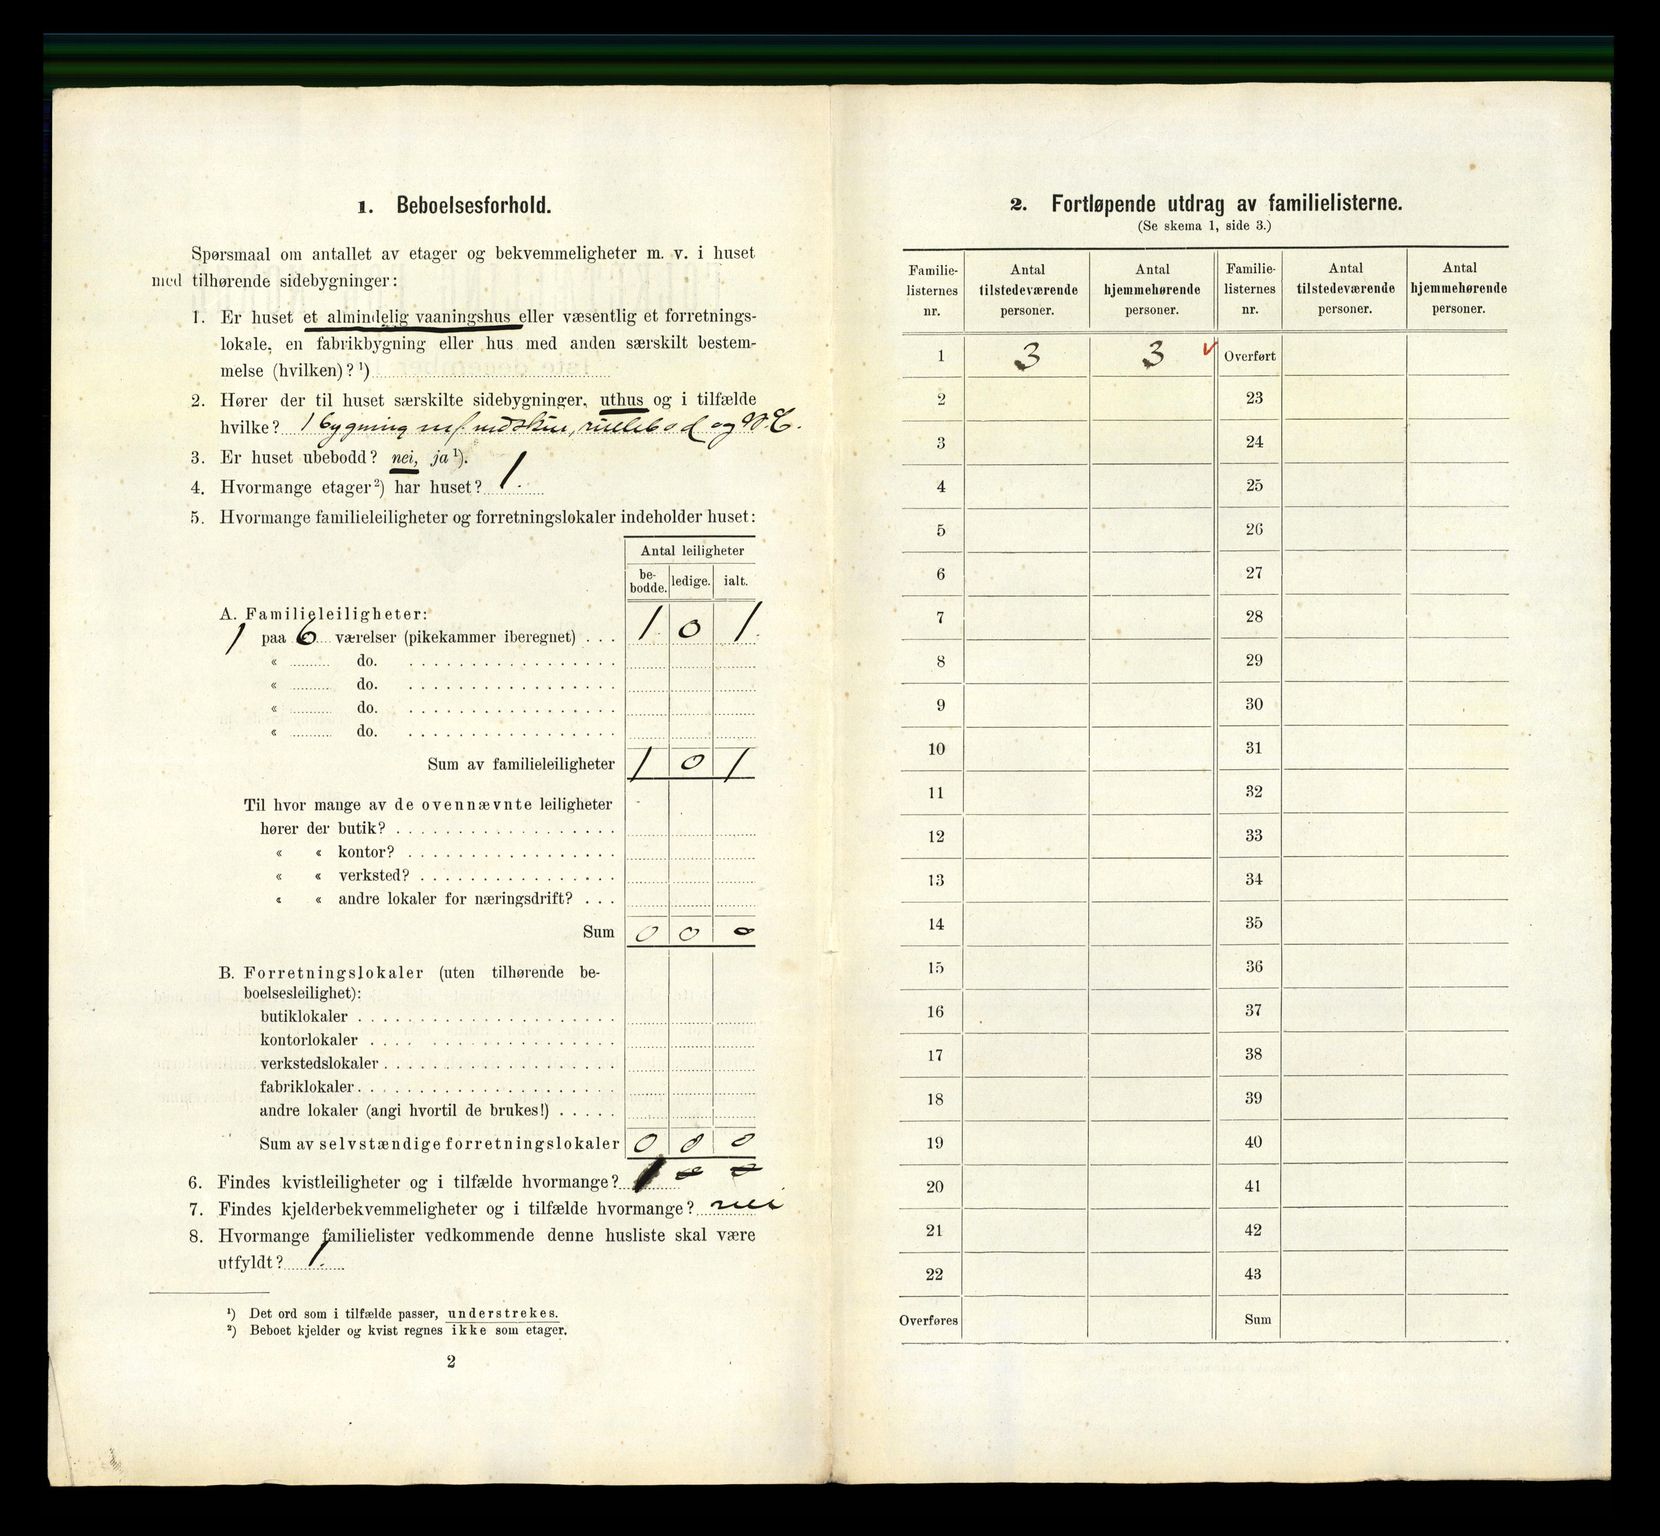 1. Beboelsesforhold.
Spørsmaal om antallet av etager og bekvemmeligheter m. v. i huset
med tilhørende sidebygninger:
1. Er huset et almindelig vaaningshus eller væsentlig et forretnings-
lokale, en fabrikbygning eller hus med anden særskilt bestem-
melse (hvilken)? ¹)
2. Hører der til huset særskilte sidebygninger, uthus og i tilfælde
hvilke? 1 bygning m/ vedskur, rullebod og W.C.
3. Er huset ubebodd? nei, ja ¹).
4. Hvormange etager ²) har huset? 1.
5. Hvormange familieleiligheter og forretningslokaler indeholder huset:
Antal leiligheter
be-
bodde. ledige. ialt.
A. Familieleiligheter:
1 paa 6 værelser (pikekammer iberegnet) . . . 1 0 1.
« do.
« do.
« do.
« do.
Sum av familieleiligheter 1 0 1
Til hvor mange av de ovennævnte leiligheter
hører der butik?
« « kontor?
« « verksted?
« « andre lokaler for næringsdrift? . . .
Sum 0 0 0
B. Forretningslokaler (uten tilhørende be-
boelsesleilighet):
butiklokaler
kontorlokaler
verkstedslokaler
fabriklokaler
andre lokaler (angi hvortil de brukes!)
Sum av selvstændige forretningslokaler 0 0 0
6. Findes kvistleiligheter og i tilfælde hvormange? 0 0
7. Findes kjelderbekvemmeligheter og i tilfælde hvormange? nei
8. Hvormange familielister vedkommende denne husliste skal være
utfyldt? 1.
¹) Det ord som i tilfælde passer, understrekes.
²) Beboet kjelder og kvist regnes ikke som etager.
2
2. Fortløpende utdrag av familielisterne.
(Se skema 1, side 3.)
Familie- Antal Antal Familie- Antal Antal
listernes tilstedeværende hjemmehørende listernes tilstedeværende hjemmehørende
nr. personer. personer. nr. personer. personer.
1 3 3 Overført
2 23
3 24
4 25
5 26
6 27
7 28
8 29
9 30
10 31
11 32
12 33
13 34
14 35
15 36
16 37
17 38
18 39
19 40
20 41
21 42
22 43
Overføres Sum